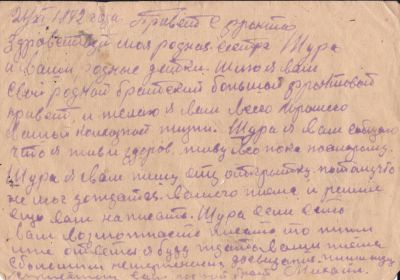 1942 года. Привет с фронта
Здравствуй моя родная сестра Шура
и ваши родные детки. Шлю я вам
свой родной братский большой фронтовой
привет, и желаю я вам всего хорошего
в вашей жизни. Шура я вам сообщаю
что я жив и здоров, живу пока
Шура я вам пишу ещё открытку, потому что
не мог дождаться вашего писма и решил
ещё вам написать. Шура если есть
вам возможность писать то
мне ответ я буду ждать ваши писма
с большим нетерпением досвидания.
ваш брат Михаил.